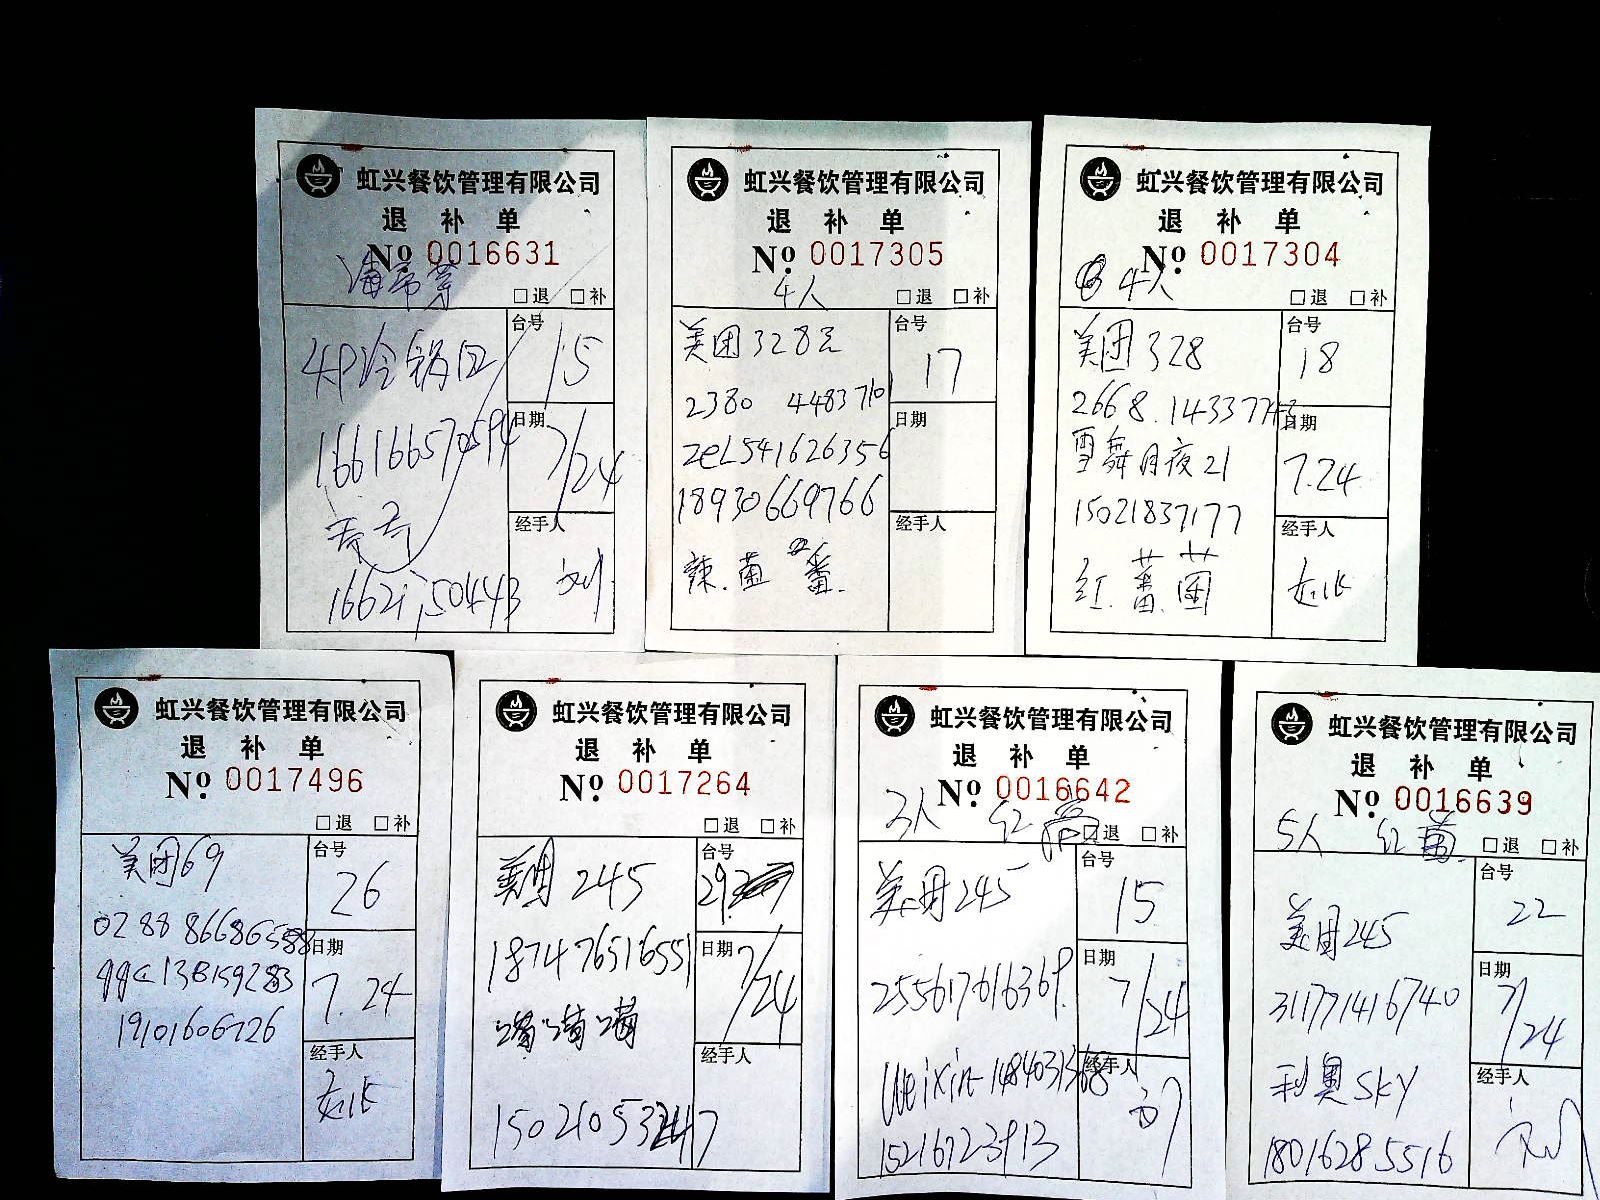 虹兴餐饮管理有限公司
退 补 单
Nº. 0016631
□退 □补
台号
15
166166570594
日期
7/24
经手人
刘
虹兴餐饮管理有限公司
退 补 单
Nº. 0017305
4人
□退 □补
美团328元
台号
17
2380 44837101
日期
zeL541626356
18930669766
经手人
辣.菌 番.
虹兴餐饮管理有限公司
退 补 单
Nº. 0017304
4人
□退 □补
美团328
台号
18
日期
7.24
雪舞月夜21
15021837177
经手人
红.蕃.菌
虹兴餐饮管理有限公司
退 补 单
Nº. 0017496
□退 □补
美团69
台号
26
日期
7.24
19101606726
经手人
虹兴餐饮管理有限公司
退 补 单
Nº. 0017264
□退 □补
美团 245
台号
29
187476516551
日期
7/24
经手人
虹兴餐饮管理有限公司
退 补 单
Nº. 0016642
3人 红
□退 □补
美团245
台号
15
255617616369
日期
7/24
经手人
15216723913
虹兴餐饮管理有限公司
退 补 单
Nº. 0016639
5人 红菌
□退 □补
美团245
台号
22
311771416740
日期
7/24
利奥SKY
经手人
18016285516